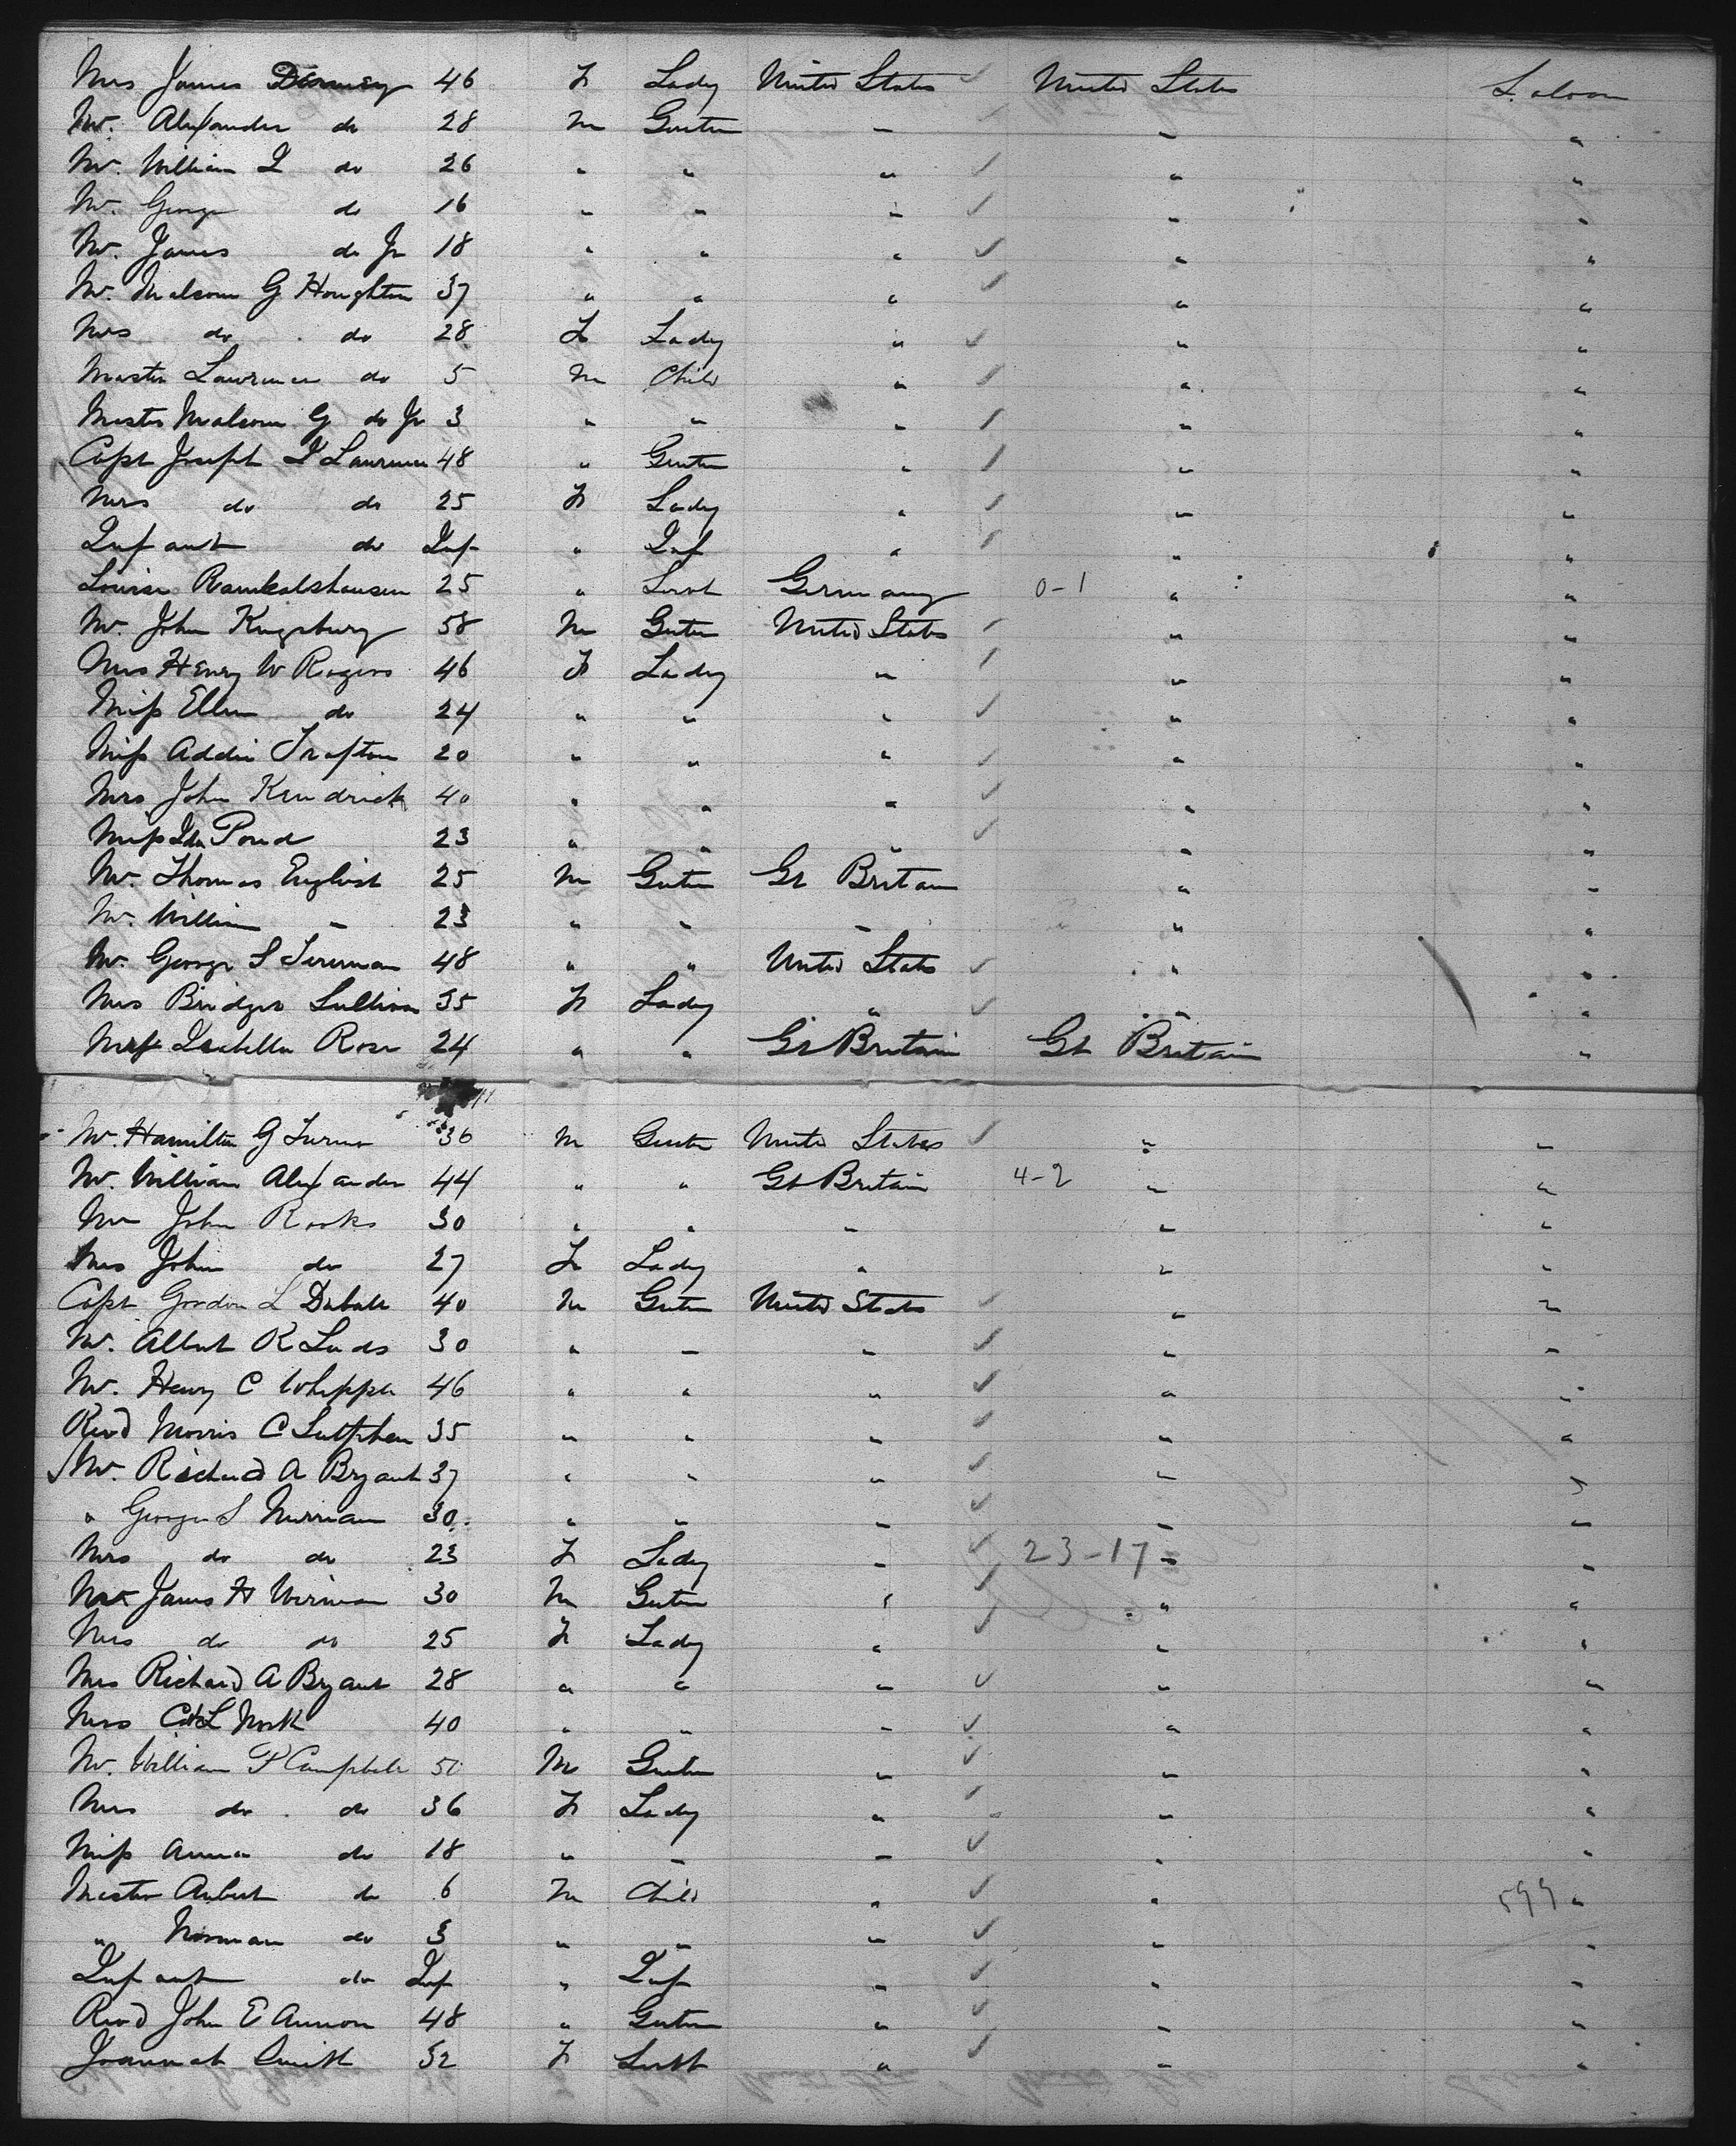 Mrs James Dormey 46 F Lady United States United States Saloon
Mr. Alexander do 28 M Gentn " " "
Mr. William I do 26 " " " " "
Mr. George do 16 " " " " "
Mr. James do Jr 18 " " " " "
Mr. Malcom G Houghton 37 " " " " "
Mrs do do 28 F Lady " " "
Master Lawrence do 5 M Child " " "
Master Malcom G do Jr 3 " " " " "
Capt Joseph I Lawrence 48 " Gentn " " "
Mrs do do 25 F Lady " " "
Infant do Inf " Inf " " "
Louise 25 " Servt Germany 0-1 " "
Mr. John Kingsbury 58 M Gentn United States " "
Mrs Henry W Rogers 46 F Lady " " "
Miss Ellen do 24 " " " " "
Miss Addie Trafton 20 " " " " "
Mrs John Kendrick 40 " " " " "
Miss Ida Pond 23 " " " " "
Mr. Thomas English 25 M Gentn Gt Britain " "
Mr. William " 23 " " " " "
Mr. George S 48 " " United States " "
Mrs Bridget Sullivan 35 F Lady " " "
Miss Isabella Rose 24 " " Gt Britain Gt Britain "
Mr. Hamilton G Turner 36 M Gentn United States " "
Mr. William Alexander 44 " " Gt Britain 4-2 " "
Mr John Rooks 30 " " " " "
Mrs John do 27 F Lady " " "
Capt Gordon L 40 M Gentn United States " "
Mr. Albert R Leeds 30 " " " " "
Mr. Henry C Whipple 46 " " " " "
Revd Morris C Sutphen 35 " " " " "
Mr. Richard A Bryant 37 " " " " "
" George S Merriam 30 " " " " "
Mrs do do 23 F Lady " 23-17 " "
Mr James H 30 M Gentn " " "
Mrs do do 25 F Lady " " "
Mrs Richard A Bryant 28 " " " " "
Mrs 40 " " " " "
Mr. William P Campbell 50 M Gentn " " "
Mrs do do 36 F Lady " " "
Miss Anna do 18 " " " " "
Master do 6 M Child " " 599 "
" Norman do 3 " " " " "
Infant do Inf " Inf " " "
Revd John E 48 " Gentn " " "
Joannah Smith 32 F Servt " " "